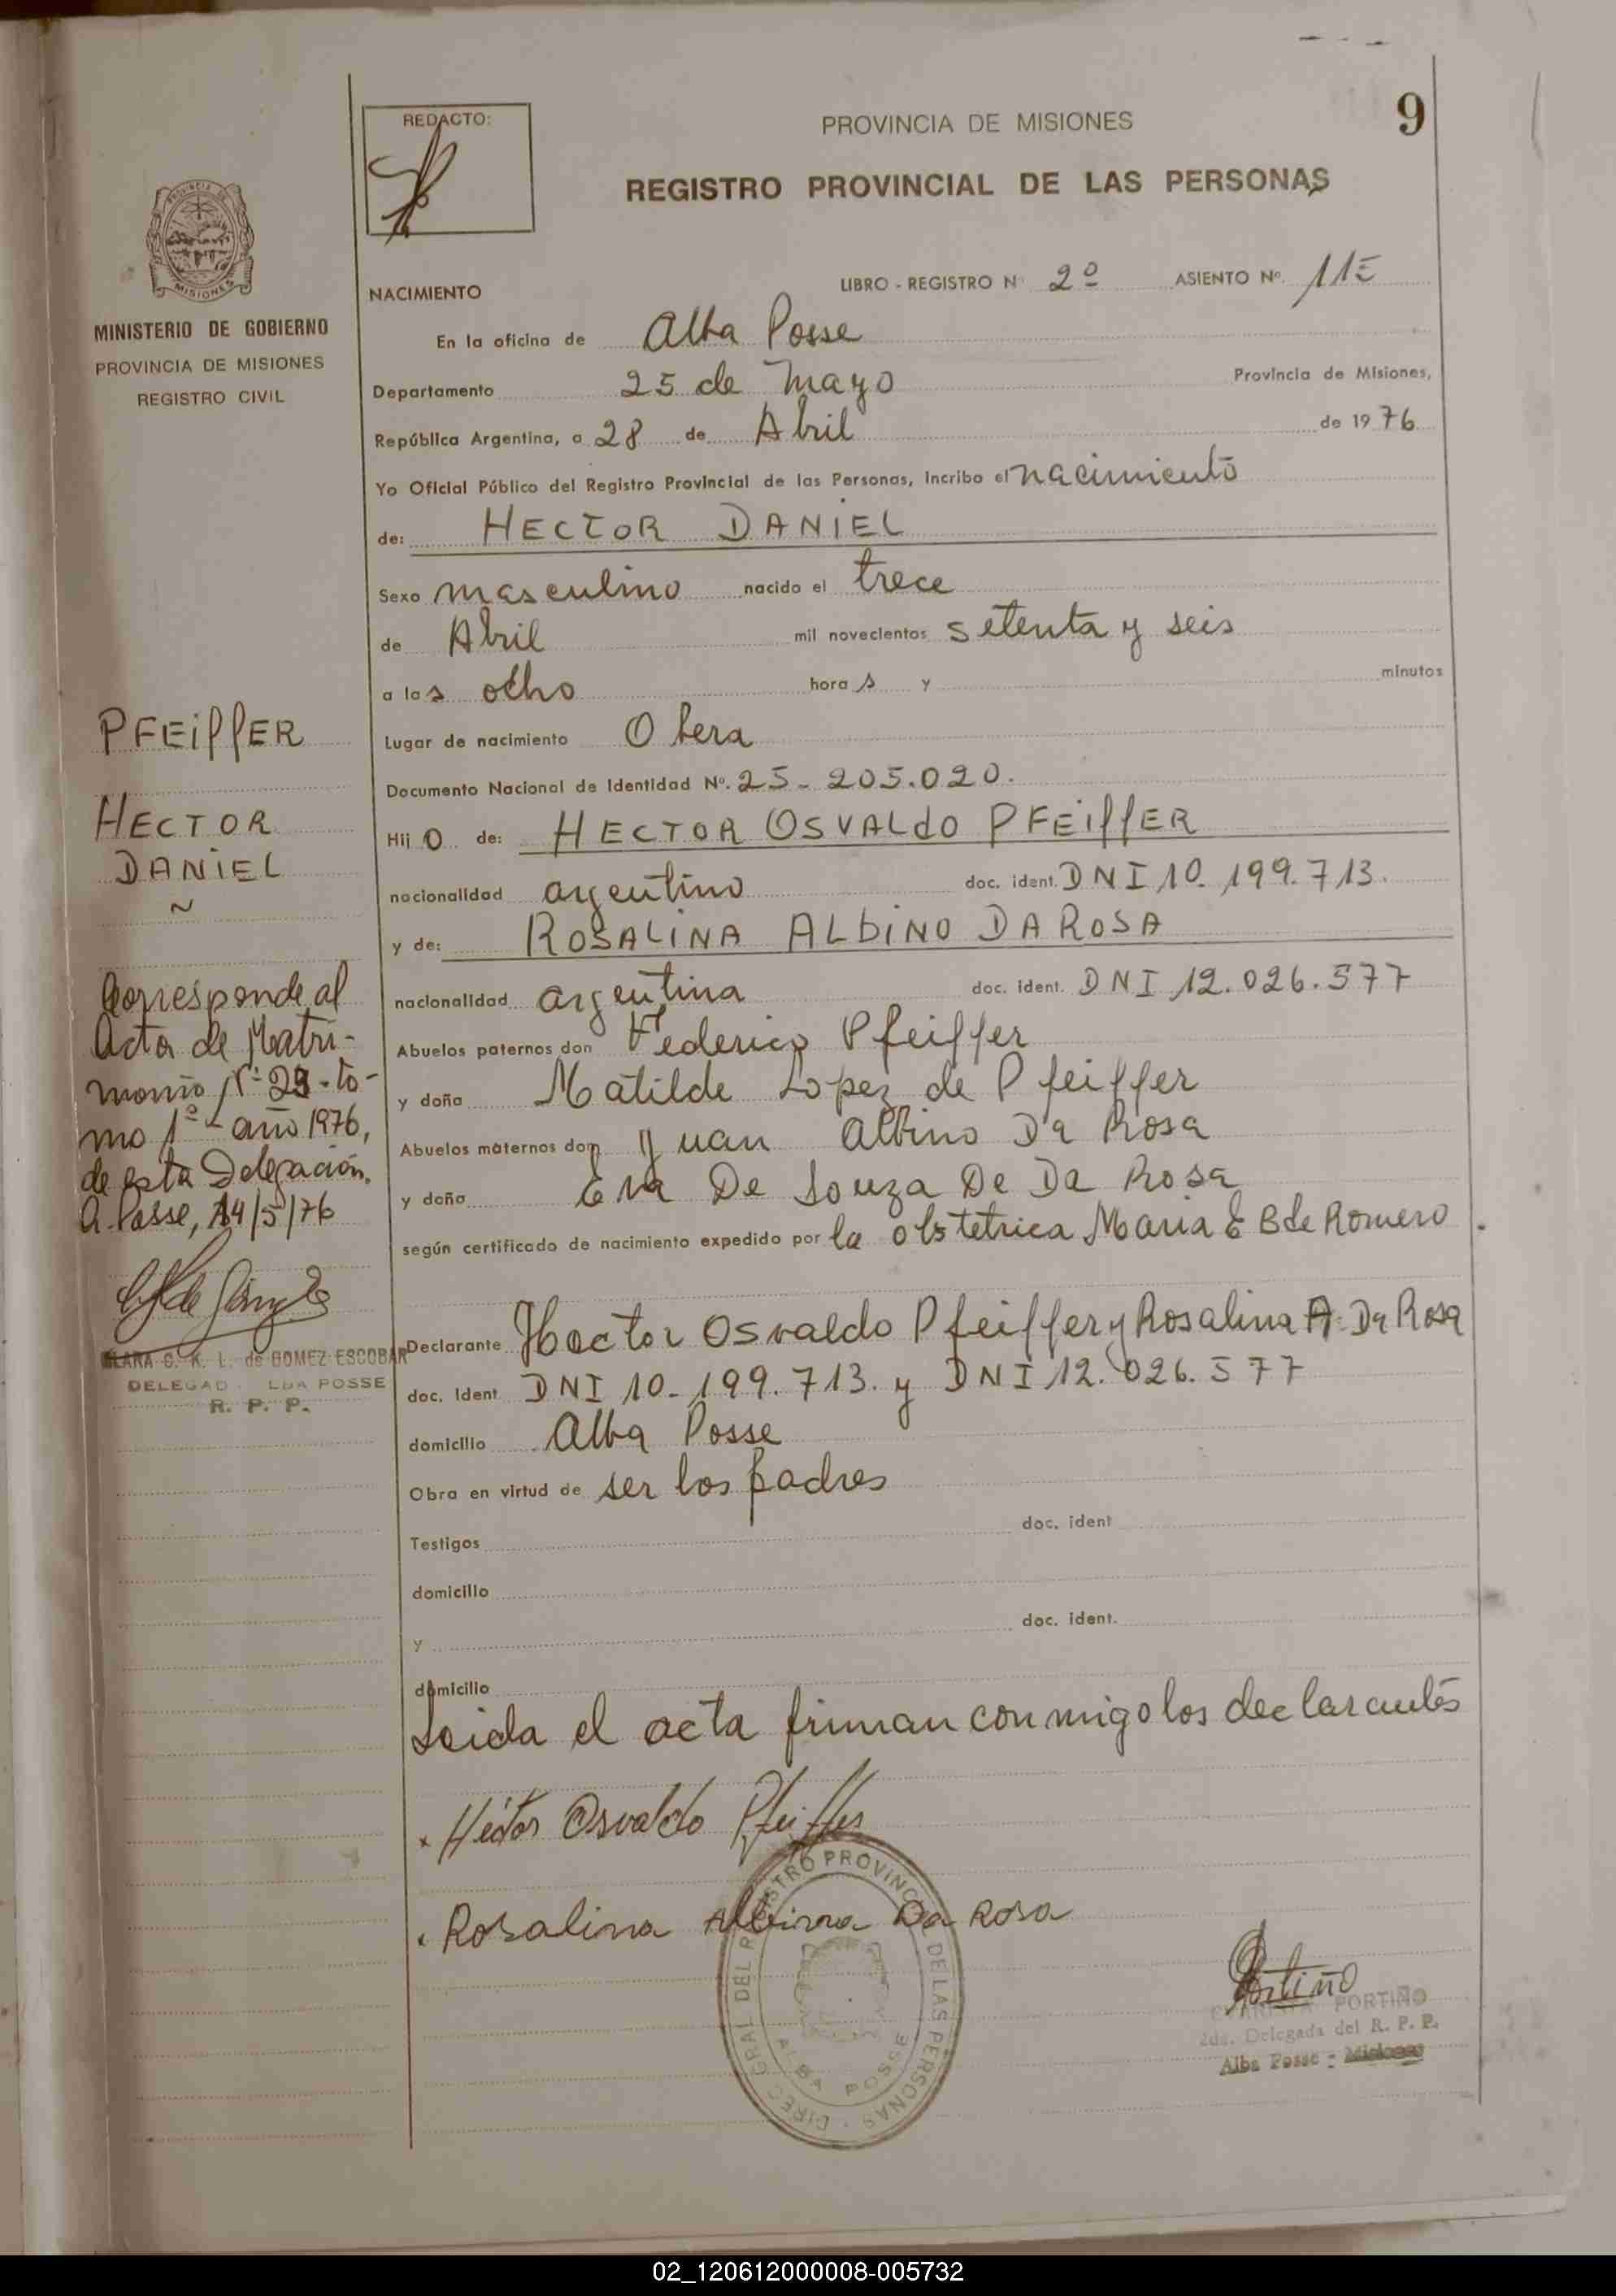 PROVINCIA DE MISIONES
9
REDACTO:
REGISTRO PROVINCIAL DE LAS PERSONAS
MINISTERIO DE GOBIERNO
PROVINCIA DE MISIONES
REGISTRO CIVIL
NACIMIENTO LIBRO - REGISTRO Nº 2º ASIENTO Nº.
En la oficina de Alba Posse
Departamento 25 de Mayo Provincia de Misiones,
República Argentina, a 28 de Abril de 1976
Yo Oficial Público del Registro Provincial de las Personas, Incribo el nacimiento
de: HECTOR DANIEL
Sexo masculino nacido el trece
de Abril mil novecientos setenta y seis
a las ocho horas y minutos
Lugar de nacimiento Obera
Documento Nacional de Identidad Nº. 25-205.020.
Hijo de: HECTOR OSVALdO PFEiffER
nacionalidad argentino doc. ident. DNI 10.199.713.
y de: ROSALINA ALbiNO DA ROSA
nacionalidad argentina doc. ident. DNI 12.026.577
Abuelos paternos don Federico Pfeiffer
y doña Matilde Lopez de Pfeiffer
Abuelos maternos don Juan Albino Da Rosa
y doña Eva De Souza De Da Rosa
según certificado de nacimiento expedido por la obstetrica Maria E B de Romero.
Declarante Hector Osvaldo Pfeiffer y Rosalina A. Da Rosa
doc. Ident DNI 10-199.713. y DNI 12.026.577
domicilio Alba Posse
Obra en virtud de ser los padres
Testigos doc. ident
domicilio
y doc. ident.
domicilio
Leida el acta firman conmigo los declarantes
Héctor Osvaldo Pfeiffer
Rosalina Albina Da Rosa
PFEiffER
HECTOR
DANIEL
Corresponde al
Acta de Matri-
monio Nº 29-to-
mo 1º año 1976,
de esta Delegación.
A. Posse, 14/5/76
CLARA C. K. L. de GOMEZ ESCOBAR
DELEGAD. LBA POSSE
R. P. P.
DIREC. GRAL DEL REGISTRO PROVINCIAL DE LAS PERSONAS
ALBA POSSE
Portiño
PORTIÑO
2da. Delegada del R. P. P.
Alba Posse - Misiones
02_120612000008-005732